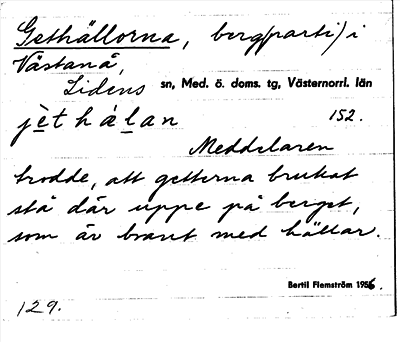 Gethällorna, berg(parti) i
Västanå,
Lidens sn, Med. ö. doms. tg, Västernorrl. län
jèt hálan 152.
Meddelaren
trodde, att getterna brukat
stå där uppe på berget,
som är brant med hällar.
Bertil Flemström 1956.
129.